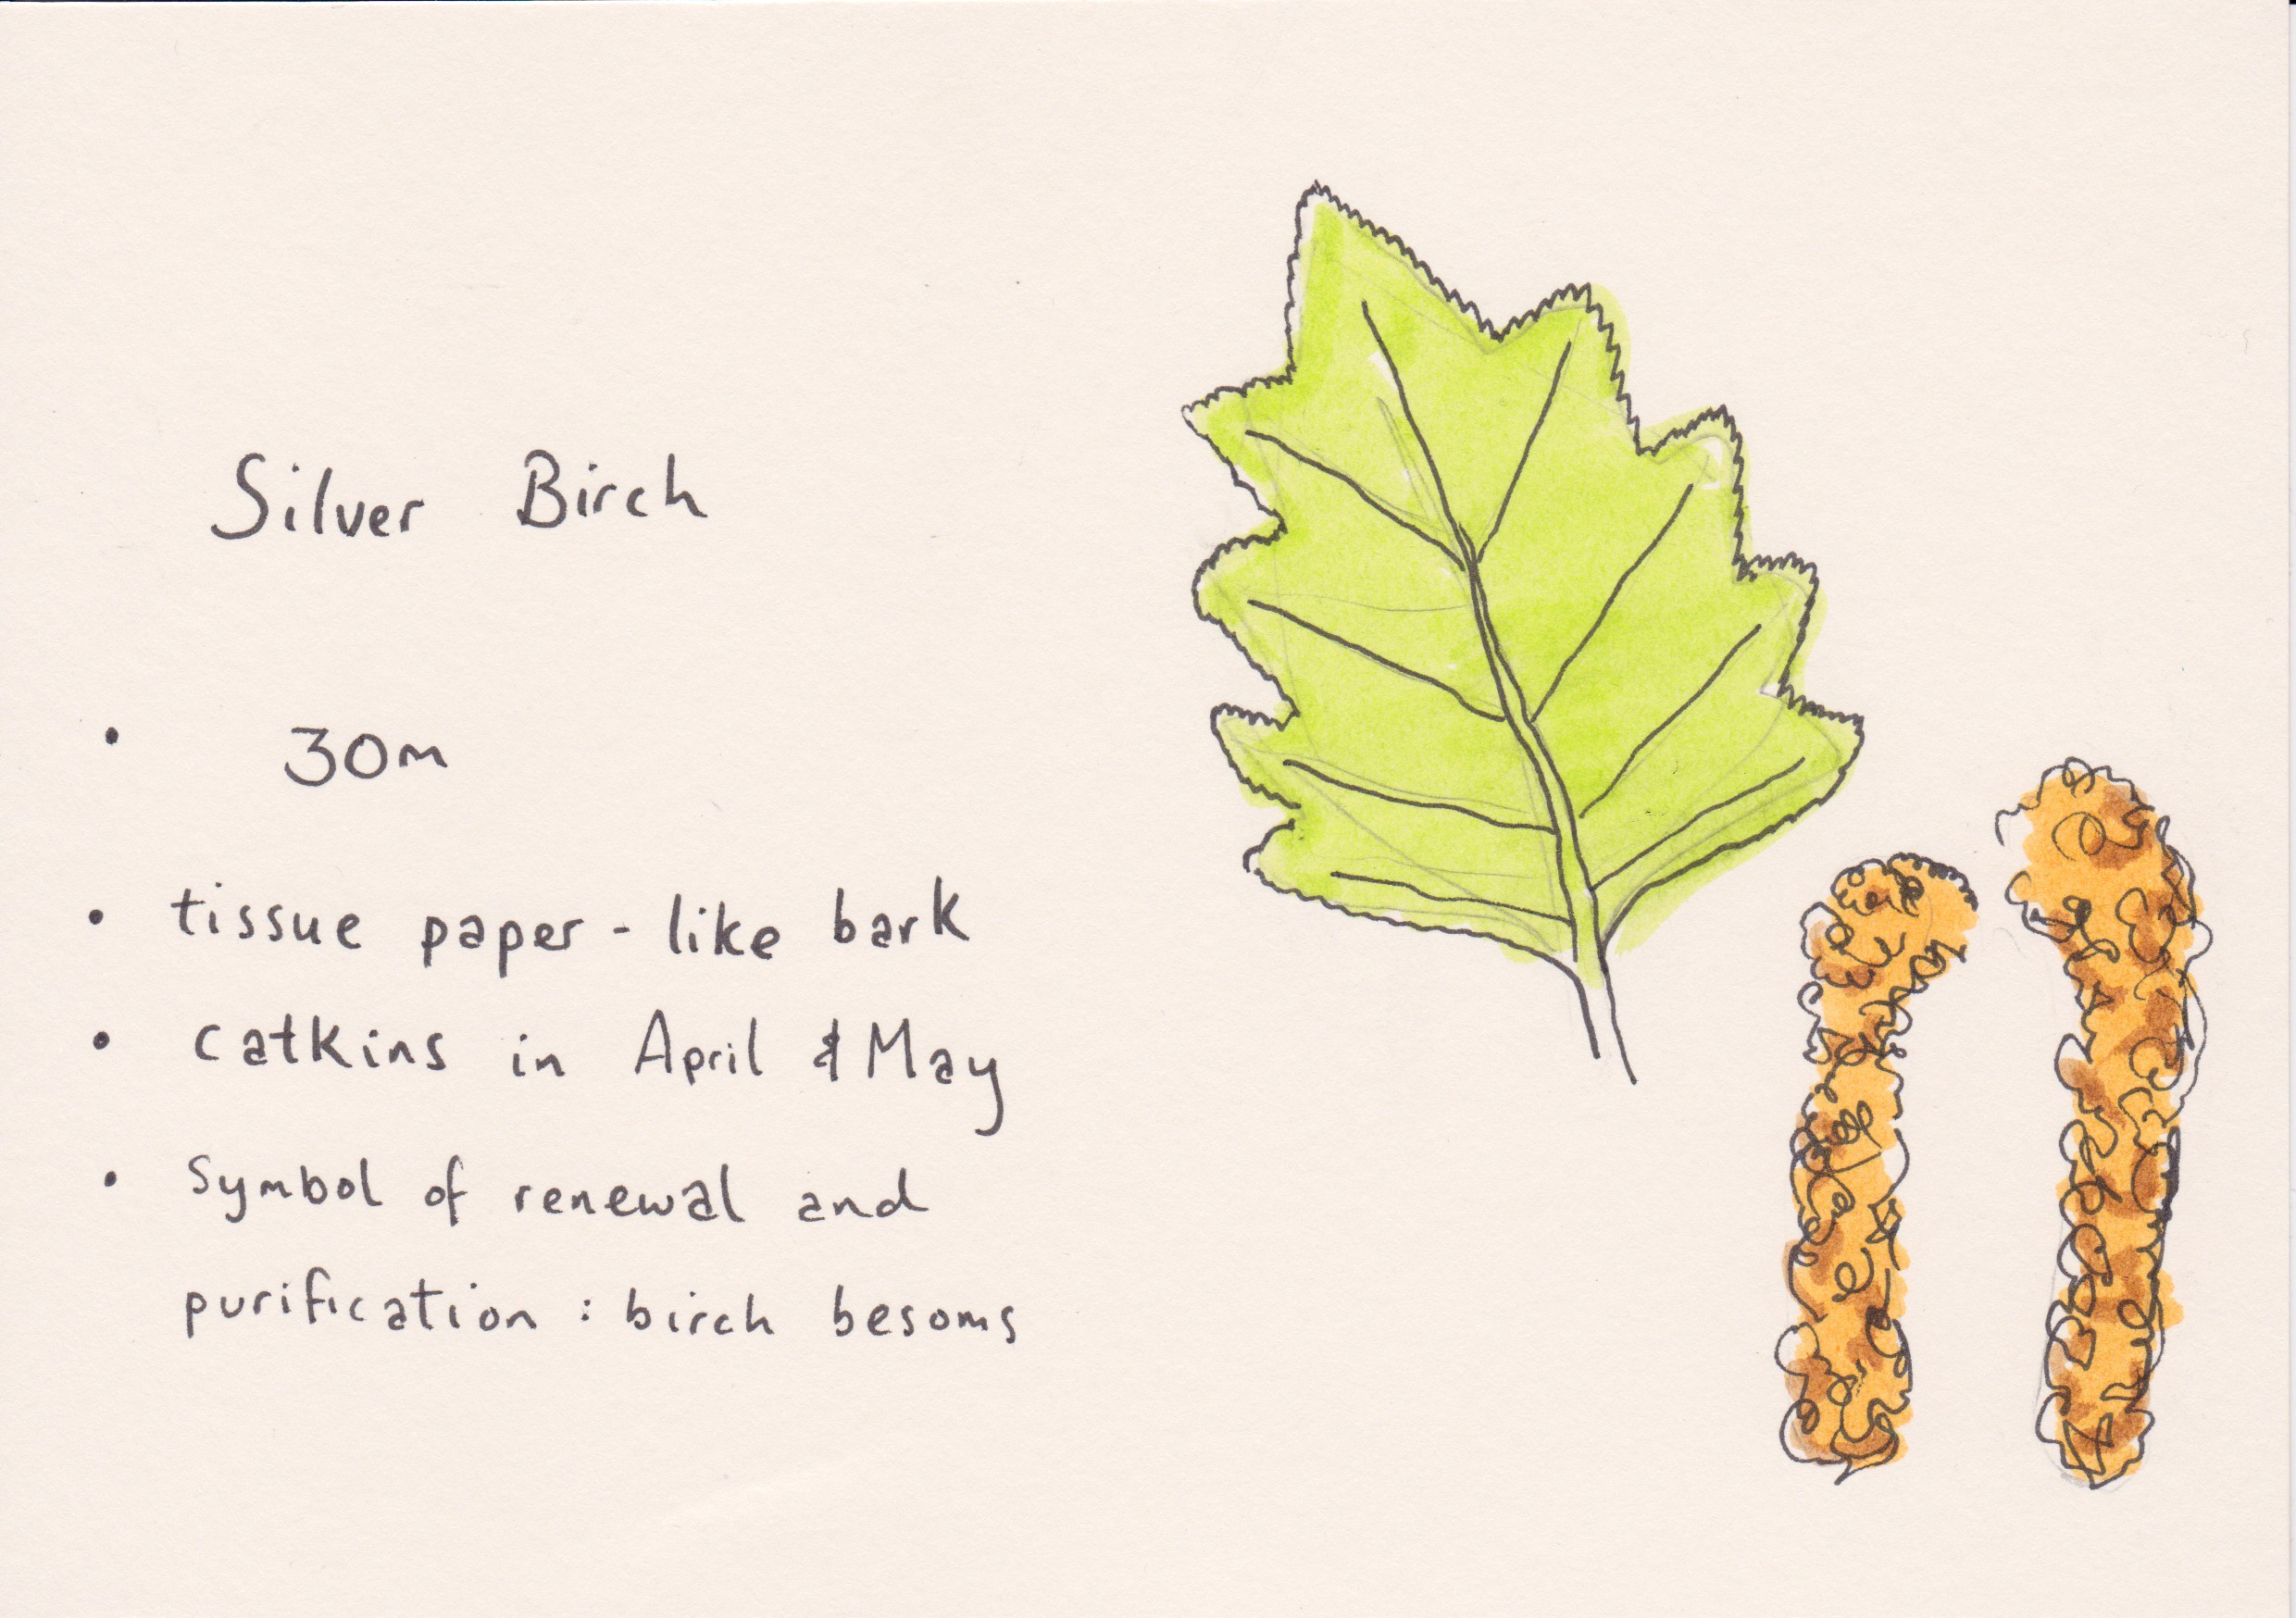 Silver Birch
• 30m
• tissue paper-like bark
• catkins in April & May
• symbol of renewal and
purification : birch besoms